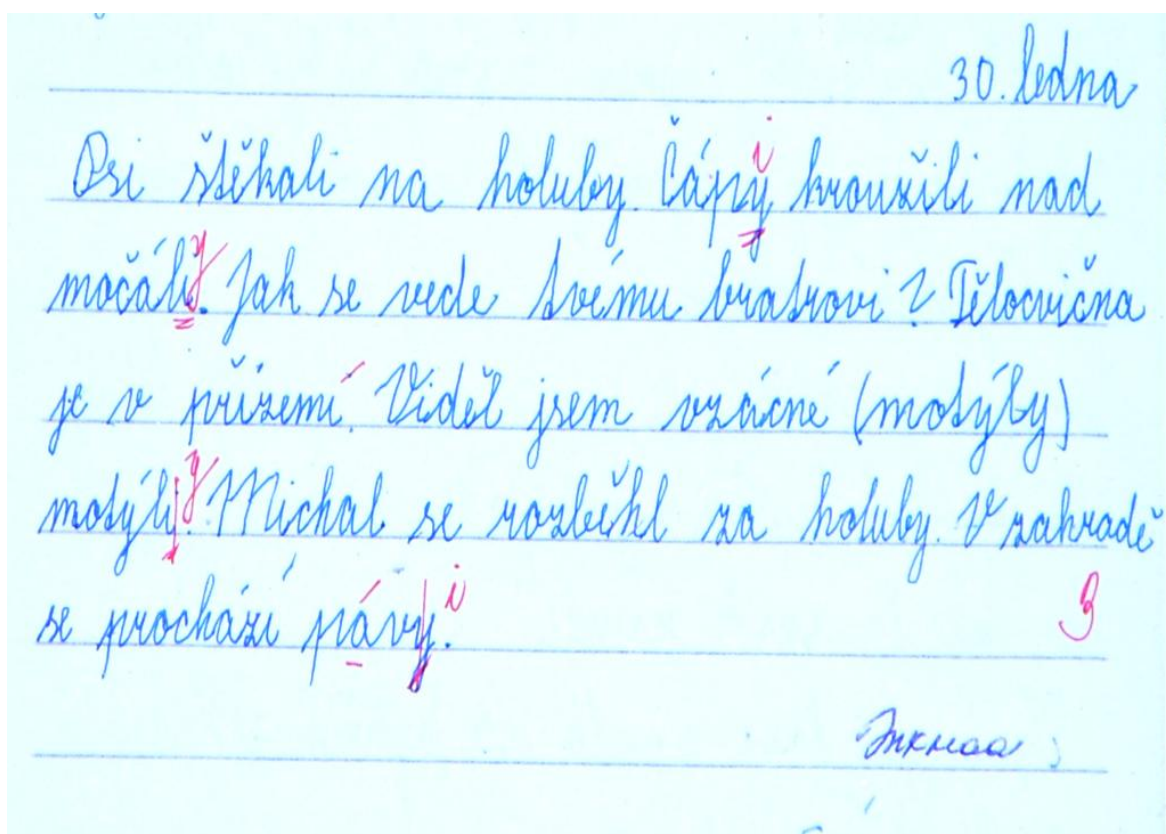 30. ledna
Psi štěkali na holuby. Čápy i kroužili nad
močáli y. Jak se vede tvému bratrovi? Tělocvična
je v přízemí. Viděl jsem vzácné (motýby)
motýli y. Michal se rozběhl za holuby. V zahradě
se prochází pávy i.
3